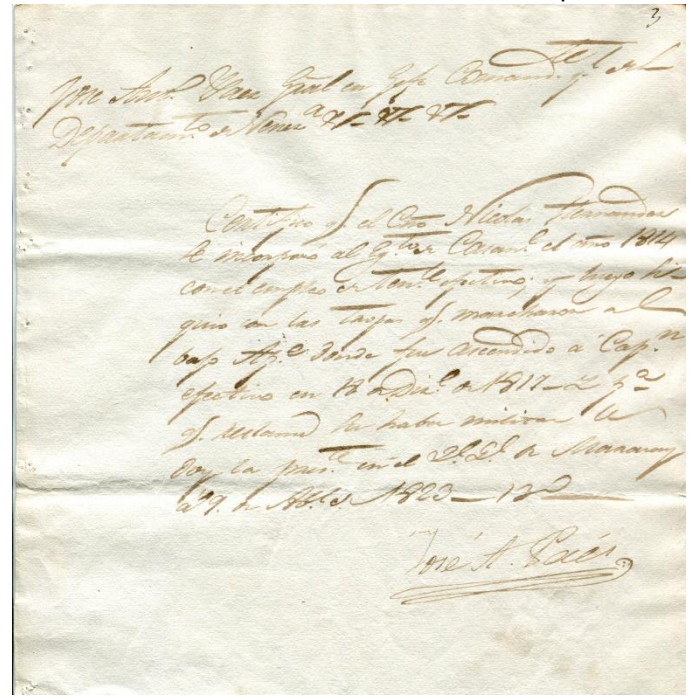 3
José Anto. Paez Gral en Gefe Comandte. gl. del
Departamto. de Venezª. &ª &ª &ª
Certifico qe. el Cno. Nicolas Hernandez
se incorporó al Egto. de Casane. el año 1814
con el empleo de Tente. efectivo; y luego
con las tropas qe. marcharon al
bajo Ape. donde fue ascendido a Capn.
efectivo en 18 de Dice. de 1817
qe. reclame su haber militar le
doy la prete. en el de Maracay
a 9. de Abl. de 1823—13º
José A. Páez